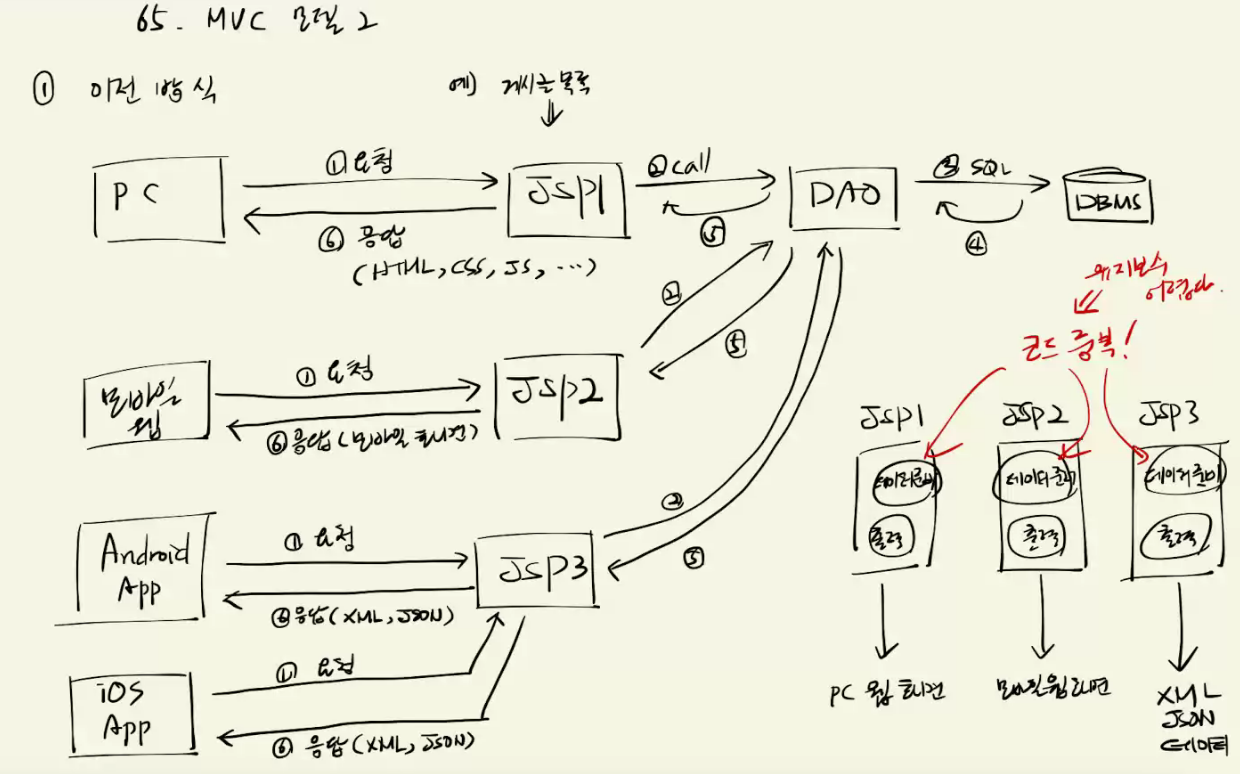 65. MVC 모델 2
① 이전 방식
예) 게시글 목록
PC
① 요청
⑥ 응답
(HTML, CSS, JS, ...)
JSP1
② call
⑤
DAO
③ SQL
④
DBMS
모바일
웹
① 요청
⑥ 응답 (모바일 화면)
JSP2
②
⑤
Android
App
① 요청
⑥ 응답 (XML, JSON)
JSP3
②
⑤
iOS
App
① 요청
⑥ 응답 (XML, JSON)
유지보수
어렵다.
코드 중복!
JSP1
데이터준비
출력
PC 웹 화면
JSP2
데이터준비
출력
모바일웹화면
JSP3
데이터준비
출력
XML
JSON
데이터